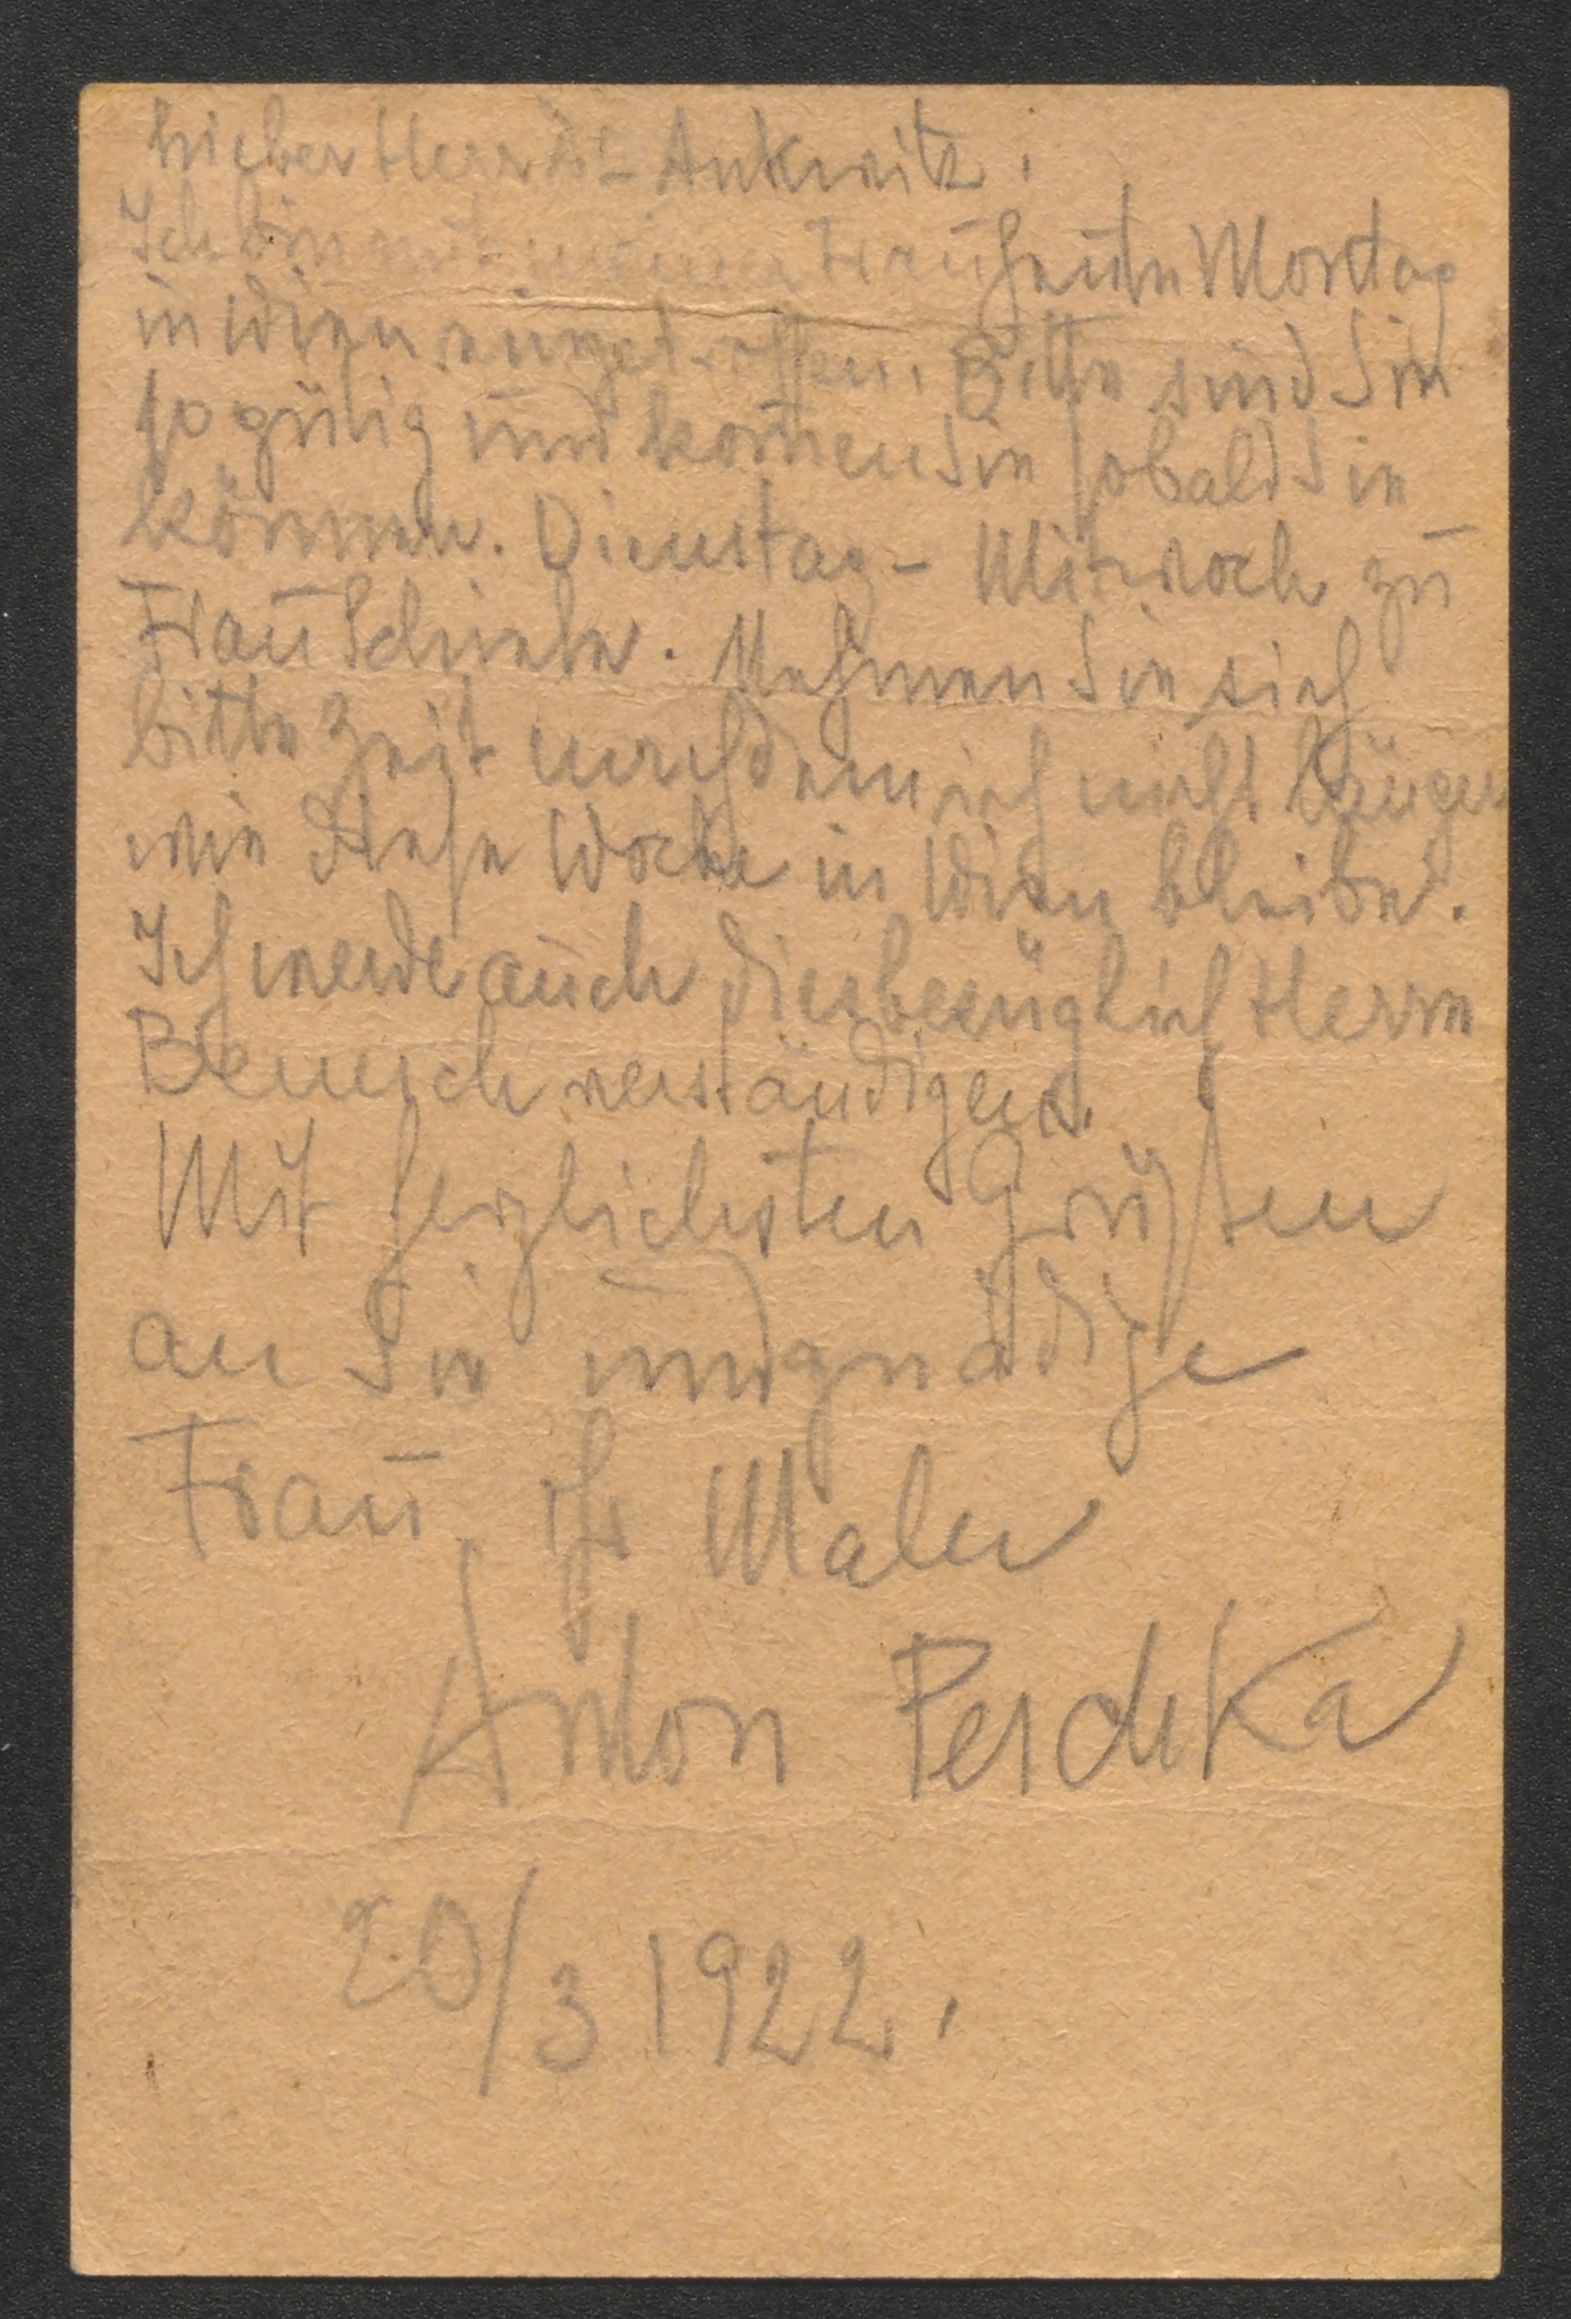 Lieber Herr Dr Ankwitz.
Ich bin mit meiner Frau heute Montag
in Wien eingetroffen. Bitte sind Sie
so gütig und kom̅en Sie sobald Sie
können. Dienstag - Mittwoch zu
Frau Schiele. Nehmen Sie sich
bitte Zeit nachdem ich nicht länger
wie diese Woche in Wien bleibe.
Ich werde auch diesbezüglich Herrn
Benesch verständigen.
Mit herzlichsten Grüßen
an Sie und gnädige
Frau ihr Maler
Anton Peschka
20/3 1922.